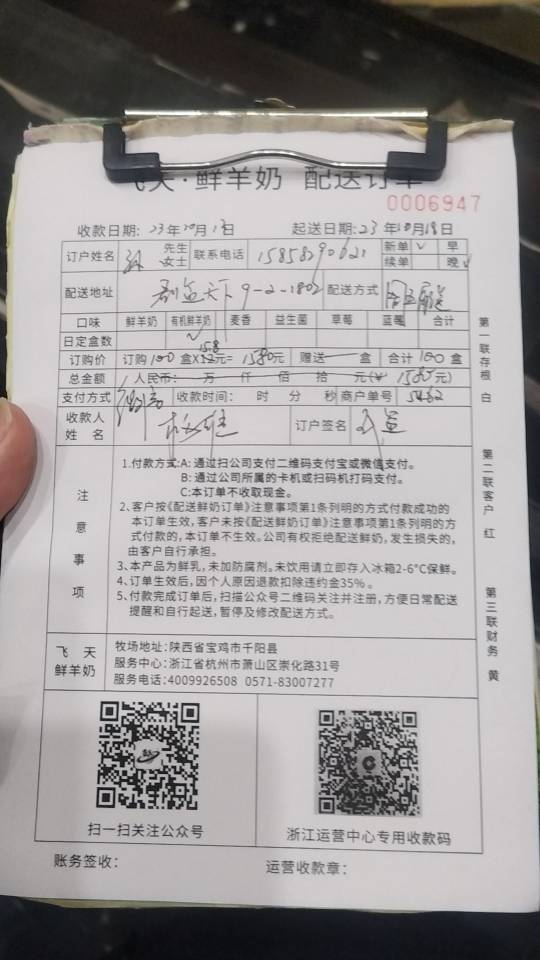 飞天·鲜羊奶 配送订单
0006947
收款日期: 23年10月13日 起送日期: 23年10月18日
订户姓名 先生 女士 联系电话 15858290621 新单 ✓ 早
续单 晚 ✓
配送地址 天下9-2-1802 配送方式
口味 鲜羊奶 有机鲜羊奶 麦香 益生菌 草莓 蓝莓 合计
日定盒数 ✓
15.8
订购价 订购100盒×12元=1580元 赠送 盒 合计100盒
总金额 人民币: 万 仟 佰 拾 元(¥ 1580元)
支付方式 收款时间: 时 分 秒 商户单号
收款人 姓名 订户签名
注意事项
1.付款方式:A:通过扫公司支付二维码支付宝或微信支付。
B:通过公司所属的卡机或扫码机打码支付。
C:本订单不收取现金。
2、客户按《配送鲜奶订单》注意事项第1条列明的方式付款成功的
本订单生效,客户未按《配送鲜奶订单》注意事项第1条列明的方
式付款的,本订单不生效。公司有权拒绝配送鲜奶,发生损失的,
由客户自行承担。
3、本产品为鲜乳,未加防腐剂。未饮用请立即存入冰箱2-6°C保鲜。
4、订单生效后,因个人原因退款扣除违约金35%。
5、付款完成订单后,扫描公众号二维码关注并注册,方便日常配送
提醒和自行起送,暂停及修改配送方式。
飞天 鲜羊奶
牧场地址:陕西省宝鸡市千阳县
服务中心:浙江省杭州市萧山区崇化路31号
服务电话:4009926508 0571-83007277
扫一扫关注公众号
浙江运营中心专用收款码
账务签收: 运营收款章:
第一联存根 白
第二联客户 红
第三联财务 黄